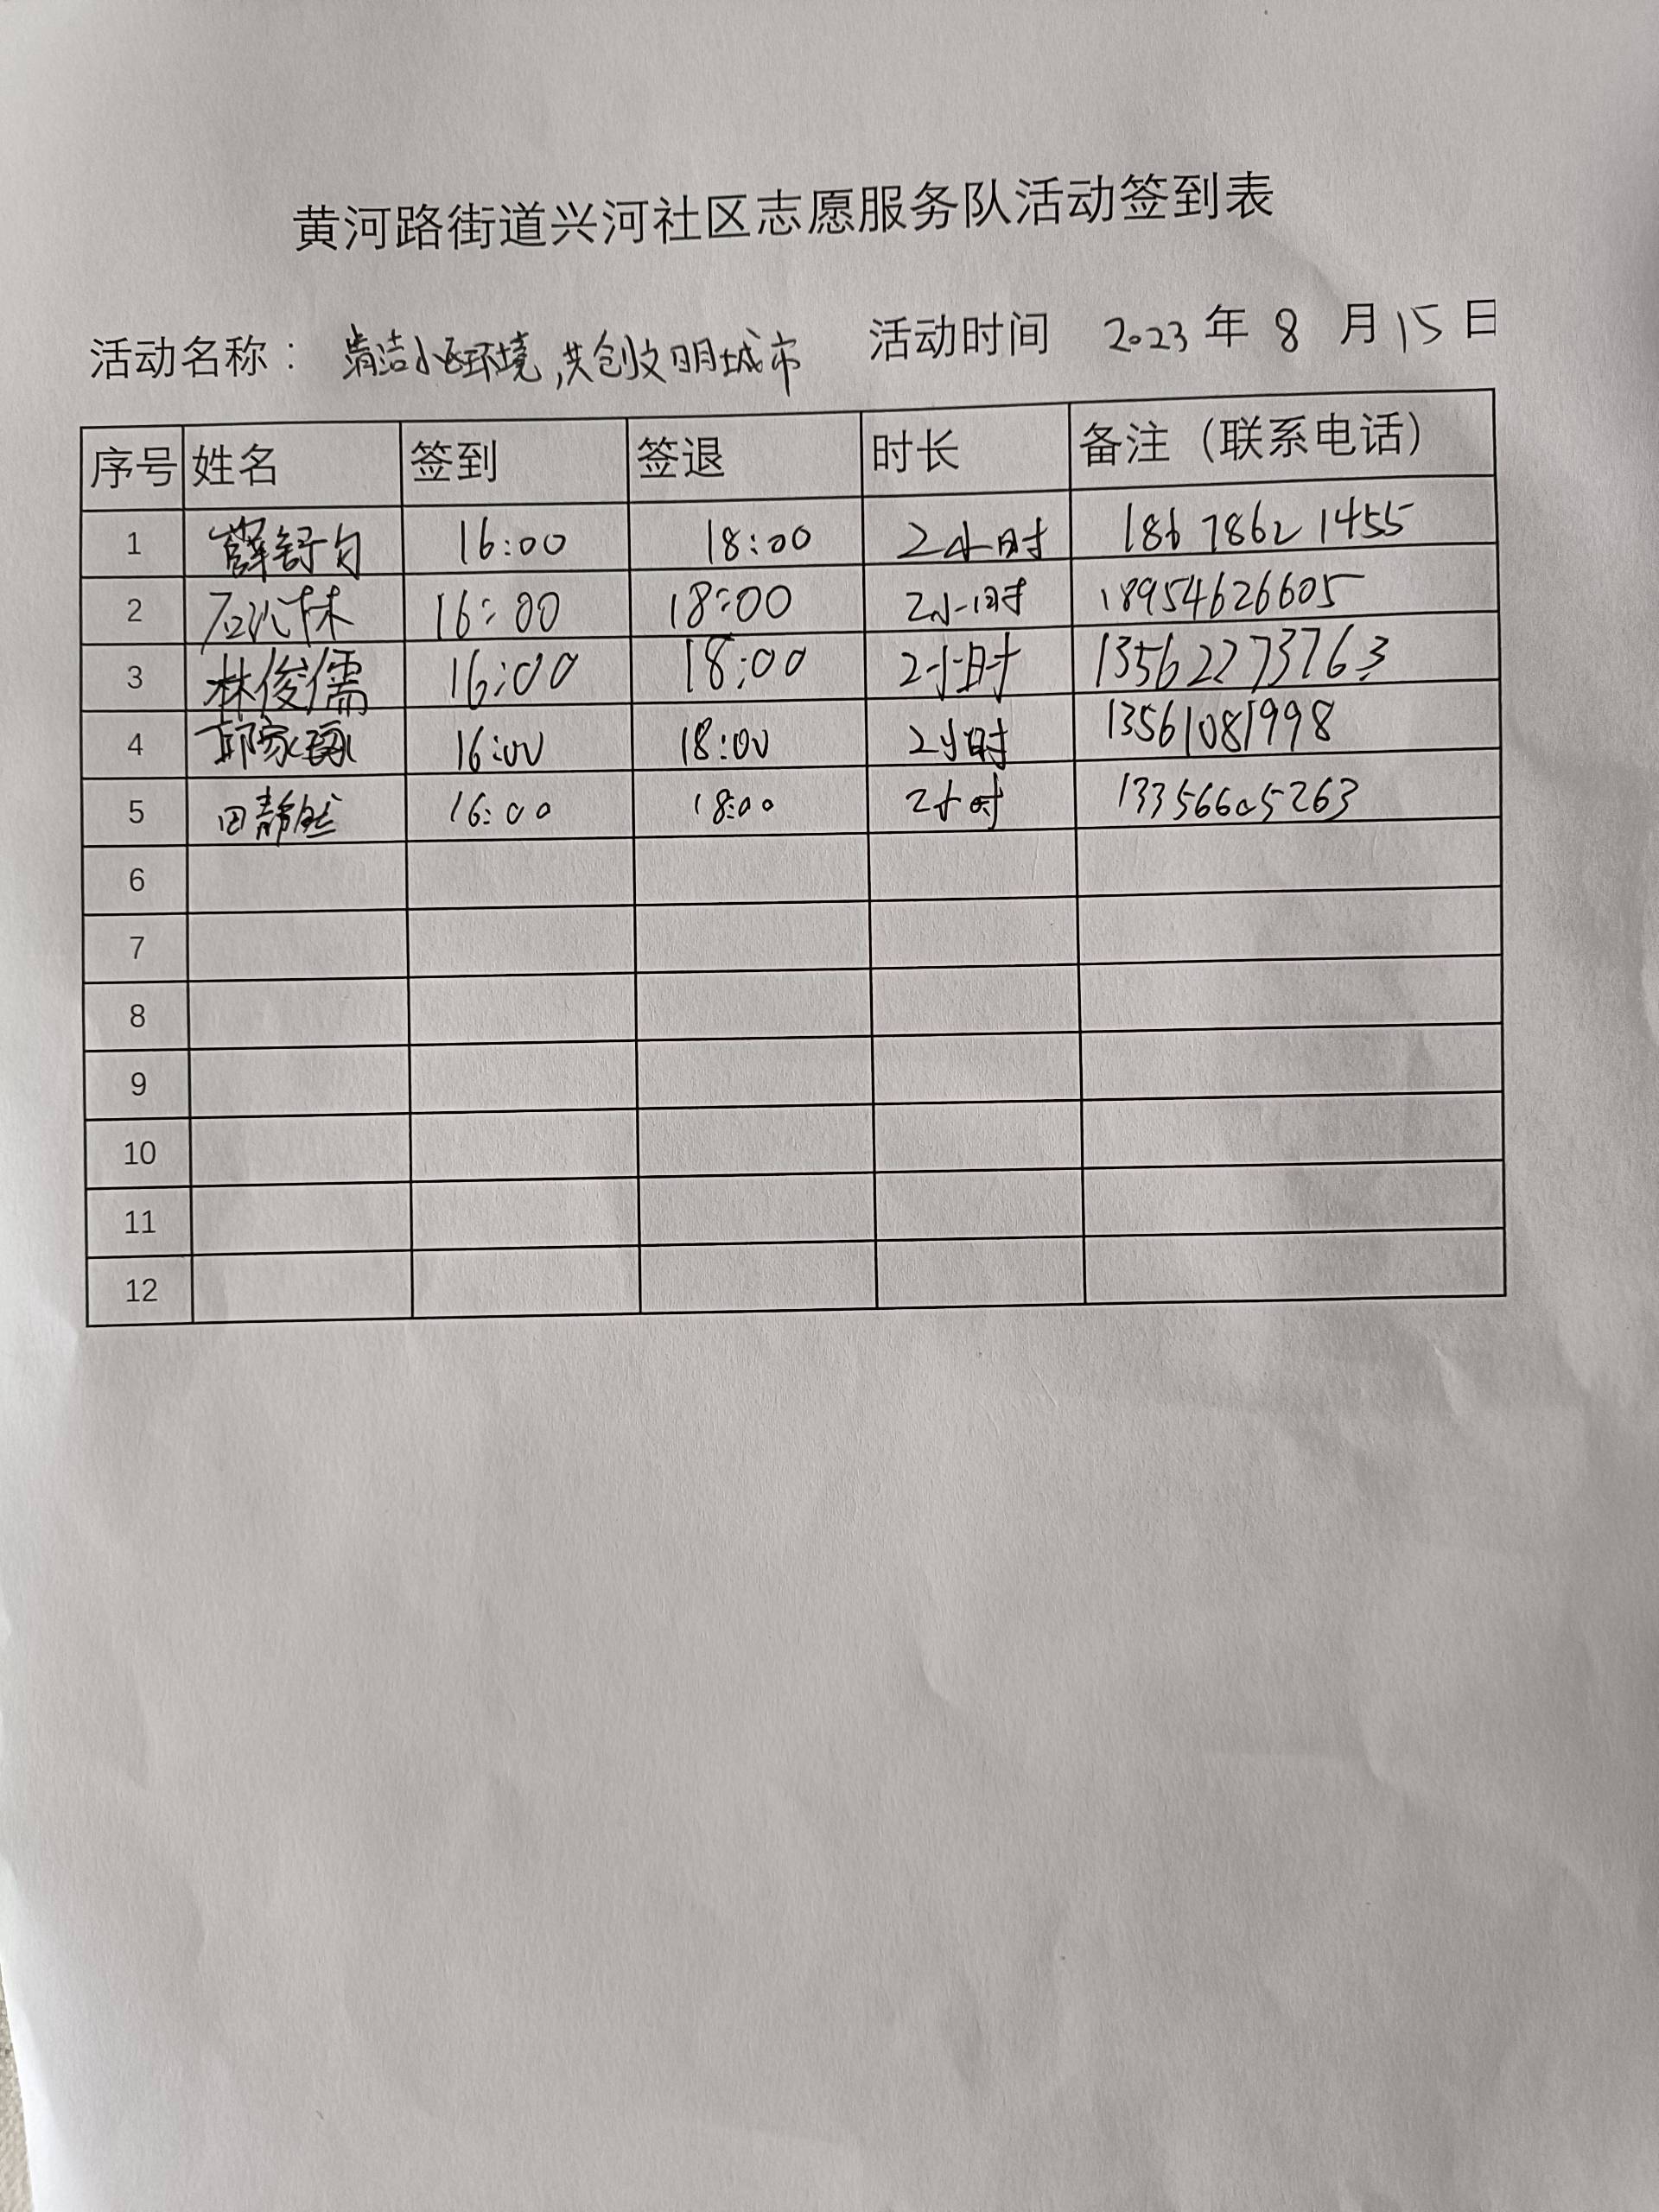 黄河路街道兴河社区志愿服务队活动签到表
活动名称： 清洁小区环境,共创文明城市 活动时间 2023年 8 月 15 日
序号 姓名 签到 签退 时长 备注（联系电话）
1 薛舒匀 16:00 18:00 2小时 18678621455
2 16:00 18:00 2小时 18954626605
3 林俊儒 16:00 18:00 2小时 13562273763
4 邱家 16:00 18:00 2小时 13561081998
5 田静然 16:00 18:00 2小时 13356605263
6
7
8
9
10
11
12